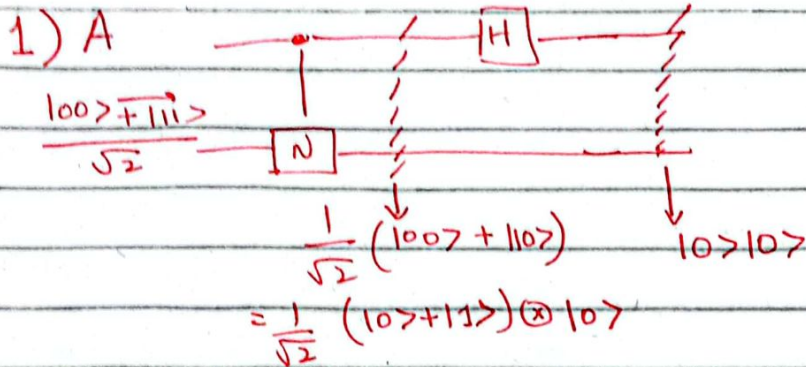 1) A
H
|00> + |11>
√2
N
1/√2 (|00> + |10>)
|0>|0>
= 1/√2 (|0>+|1>) ⊗ |0>